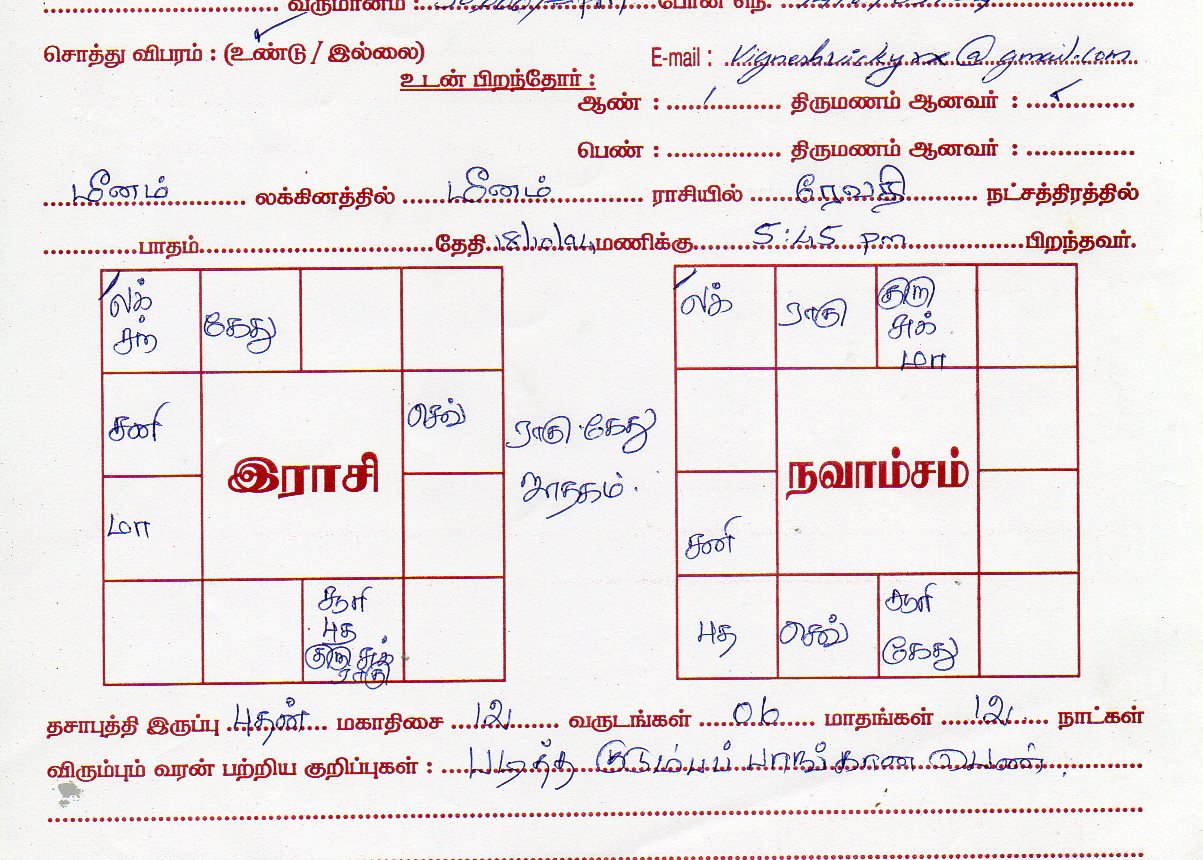 வருமானம் : போன் எந்.
சொத்து விபரம் : (உண்டு / இல்லை) E-mail : Vigneshricky xx@gmail.com
உடன் பிறந்தோர் :
ஆண் : ...../........... திருமணம் ஆனவர் : ..............
பெண் : ................ திருமணம் ஆனவர் : ..............
மீனம் லக்கினத்தில் மீனம் ராசியில் ரேவதி நட்சத்திரத்தில்
பாதம் தேதி 18/10/94 மணிக்கு 5:45 pm பிறந்தவர்.
லக் சந் கேது
லக் ராகு குரு சுக் மா
சனி செவ்
ராகு கேது ஜாதகம்.
இராசி
நவாம்சம்
மா
சனி
சூரி புத குரு சுக் ராகு
புத செவ் சூரி கேது
தசாபுத்தி இருப்பு புதன் மகாதிசை 12 வருடங்கள் 06 மாதங்கள் 12 நாட்கள்
விரும்பும் வரன் பற்றிய குறிப்புகள் : படித்த குடும்பப் பாங்கான பெண்.